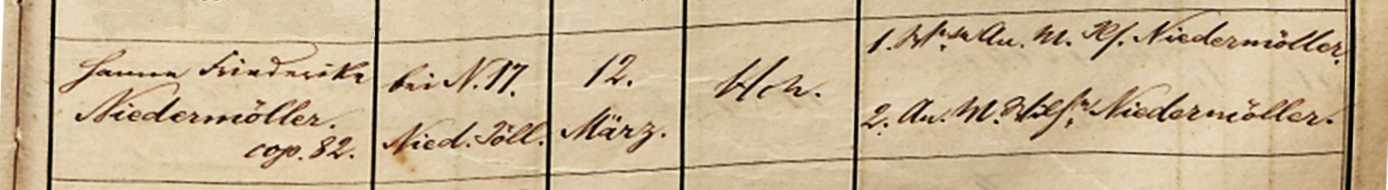 Hanne Friederike
Niedermöller.
cop. 82.
bei N. 17.
Nied. Jöll.
12.
März.
1. An. M. Niedermöller.
2. An. M. Niedermöller.